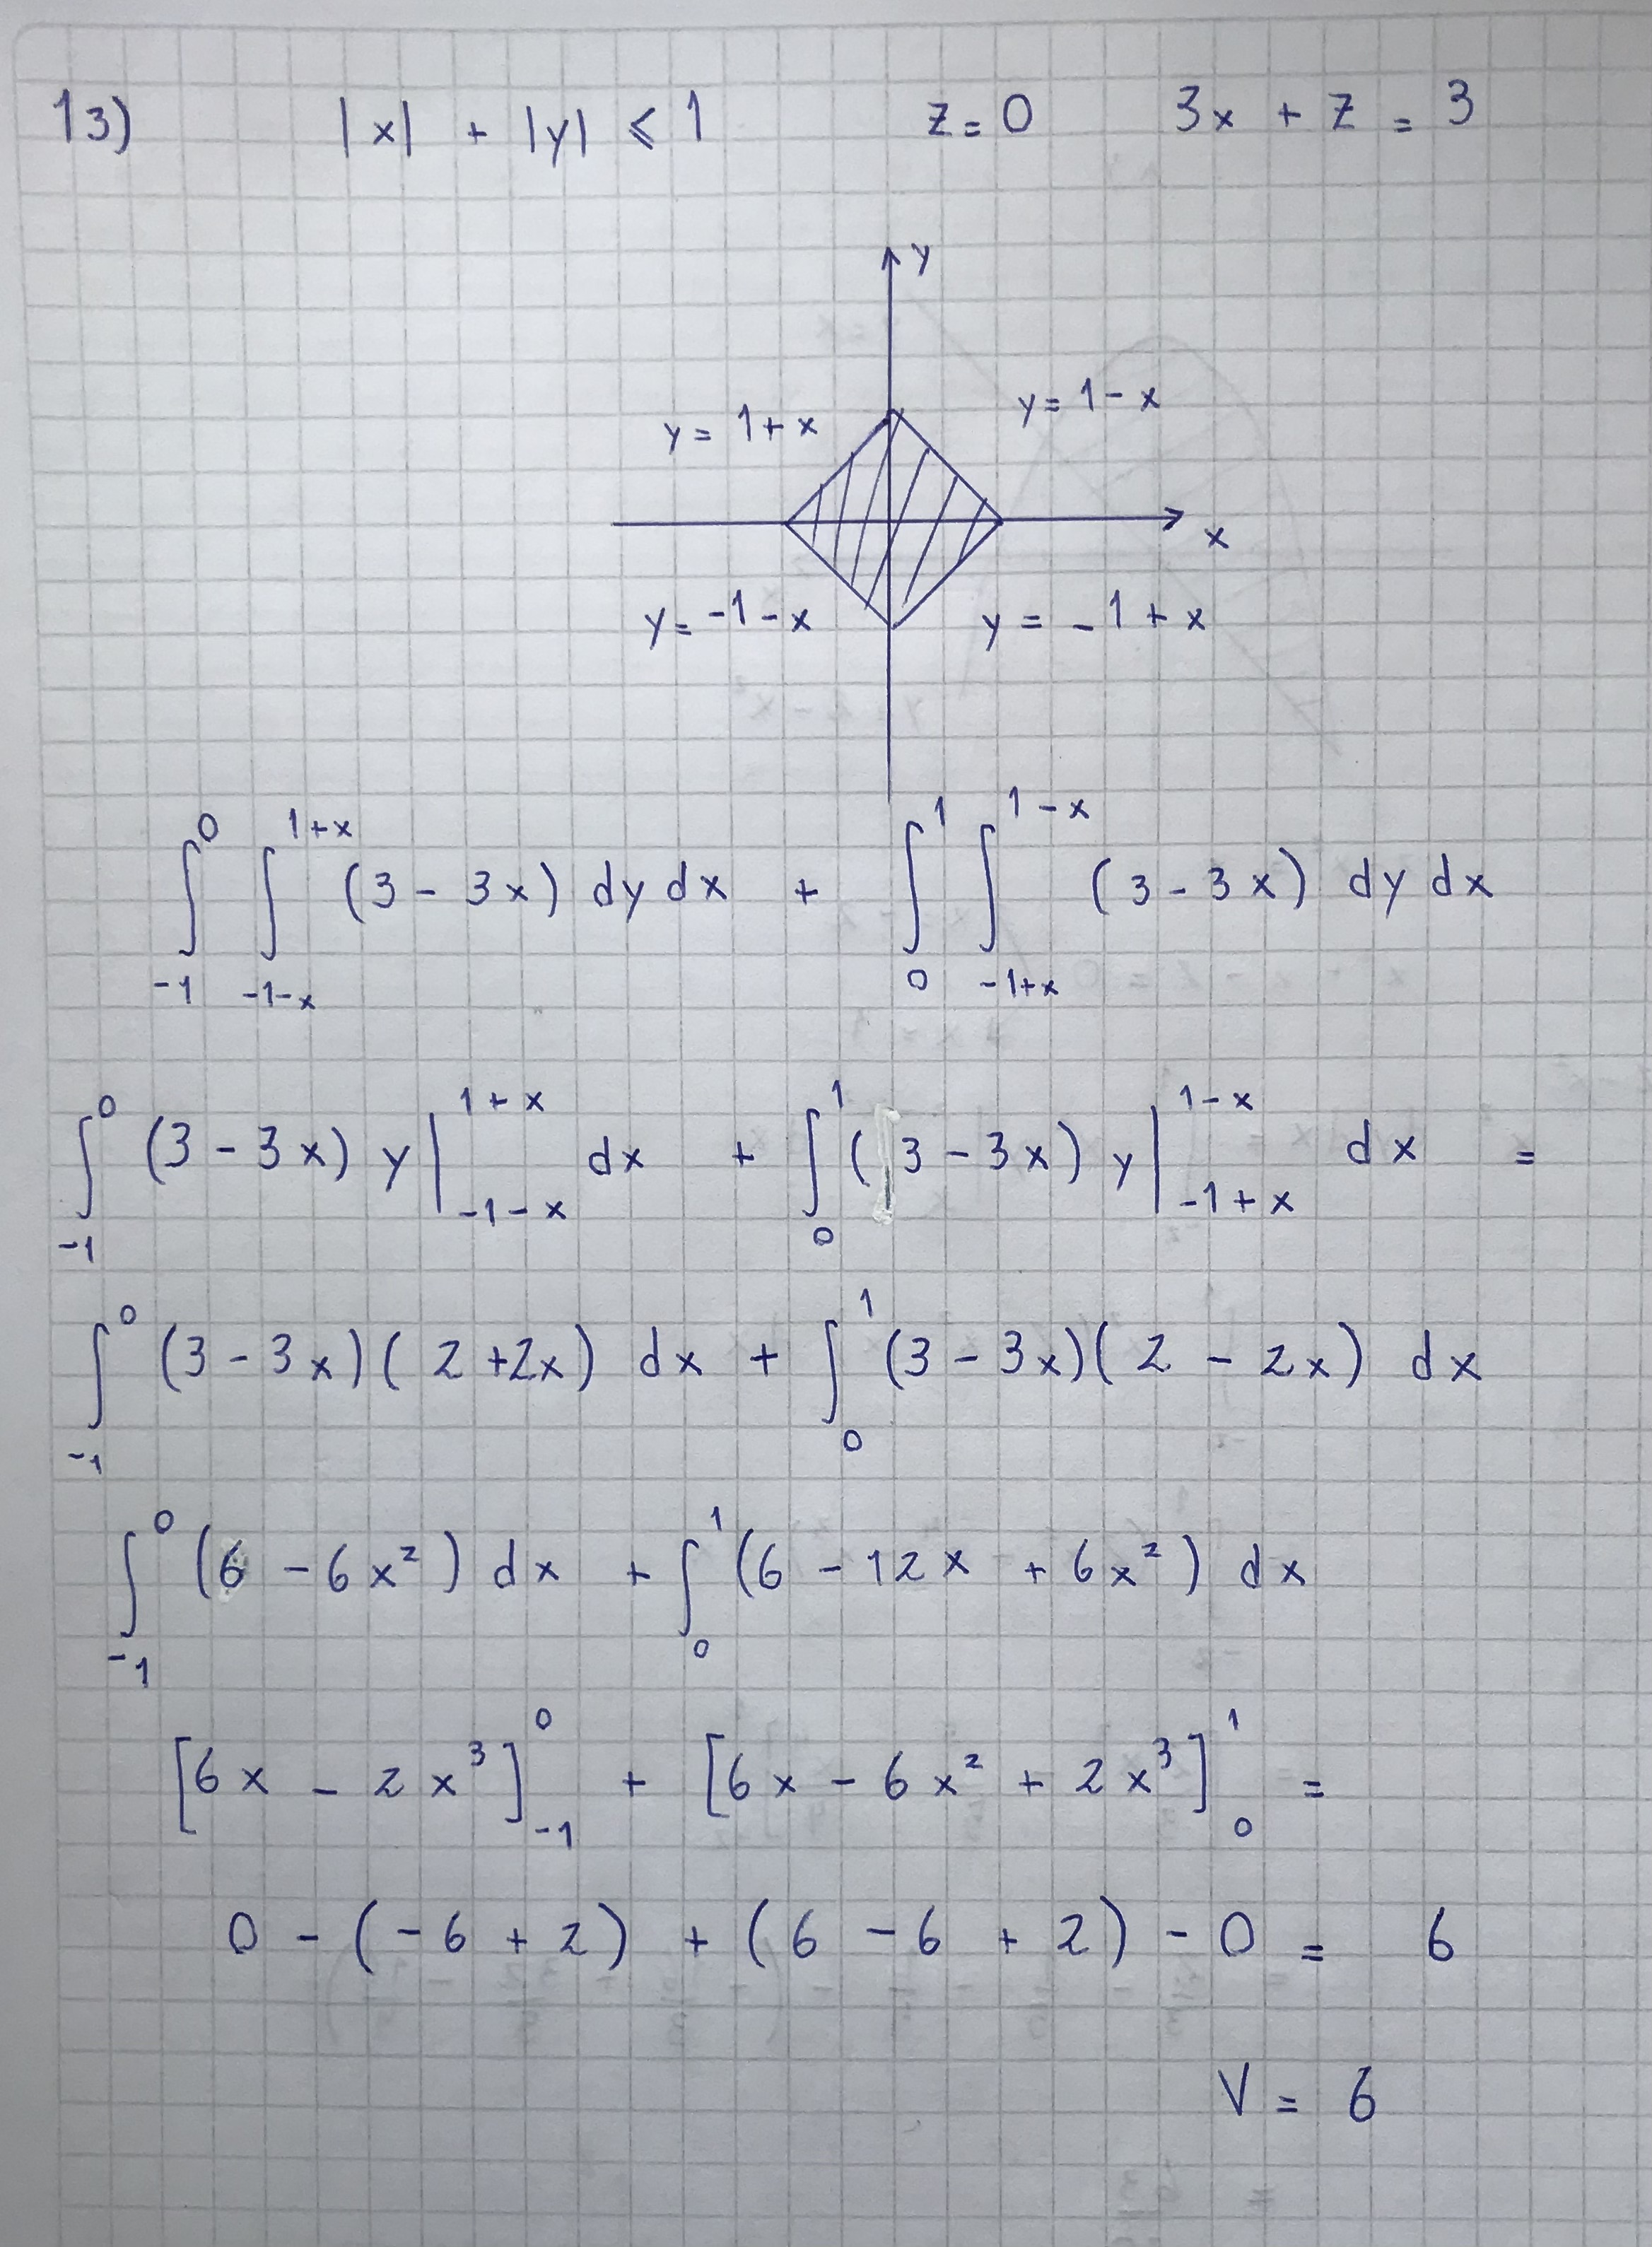 13) |x| + |y| ⩽ 1 z = 0 3x + z = 3
y
y = 1 + x y = 1 - x
x
y = -1 - x y = -1 + x
∫_{-1}^{0} ∫_{-1-x}^{1+x} (3 - 3x) dy dx + ∫_{0}^{1} ∫_{-1+x}^{1-x} (3 - 3x) dy dx
∫_{-1}^{0} (3 - 3x) y |_{-1-x}^{1+x} dx + ∫_{0}^{1} (3 - 3x) y |_{-1+x}^{1-x} dx =
∫_{-1}^{0} (3 - 3x)(2 + 2x) dx + ∫_{0}^{1} (3 - 3x)(2 - 2x) dx
∫_{-1}^{0} (6 - 6x²) dx + ∫_{0}^{1} (6 - 12x + 6x²) dx
[6x - 2x³]_{-1}^{0} + [6x - 6x² + 2x³]_{0}^{1} =
0 - (-6 + 2) + (6 - 6 + 2) - 0 = 6
V = 6